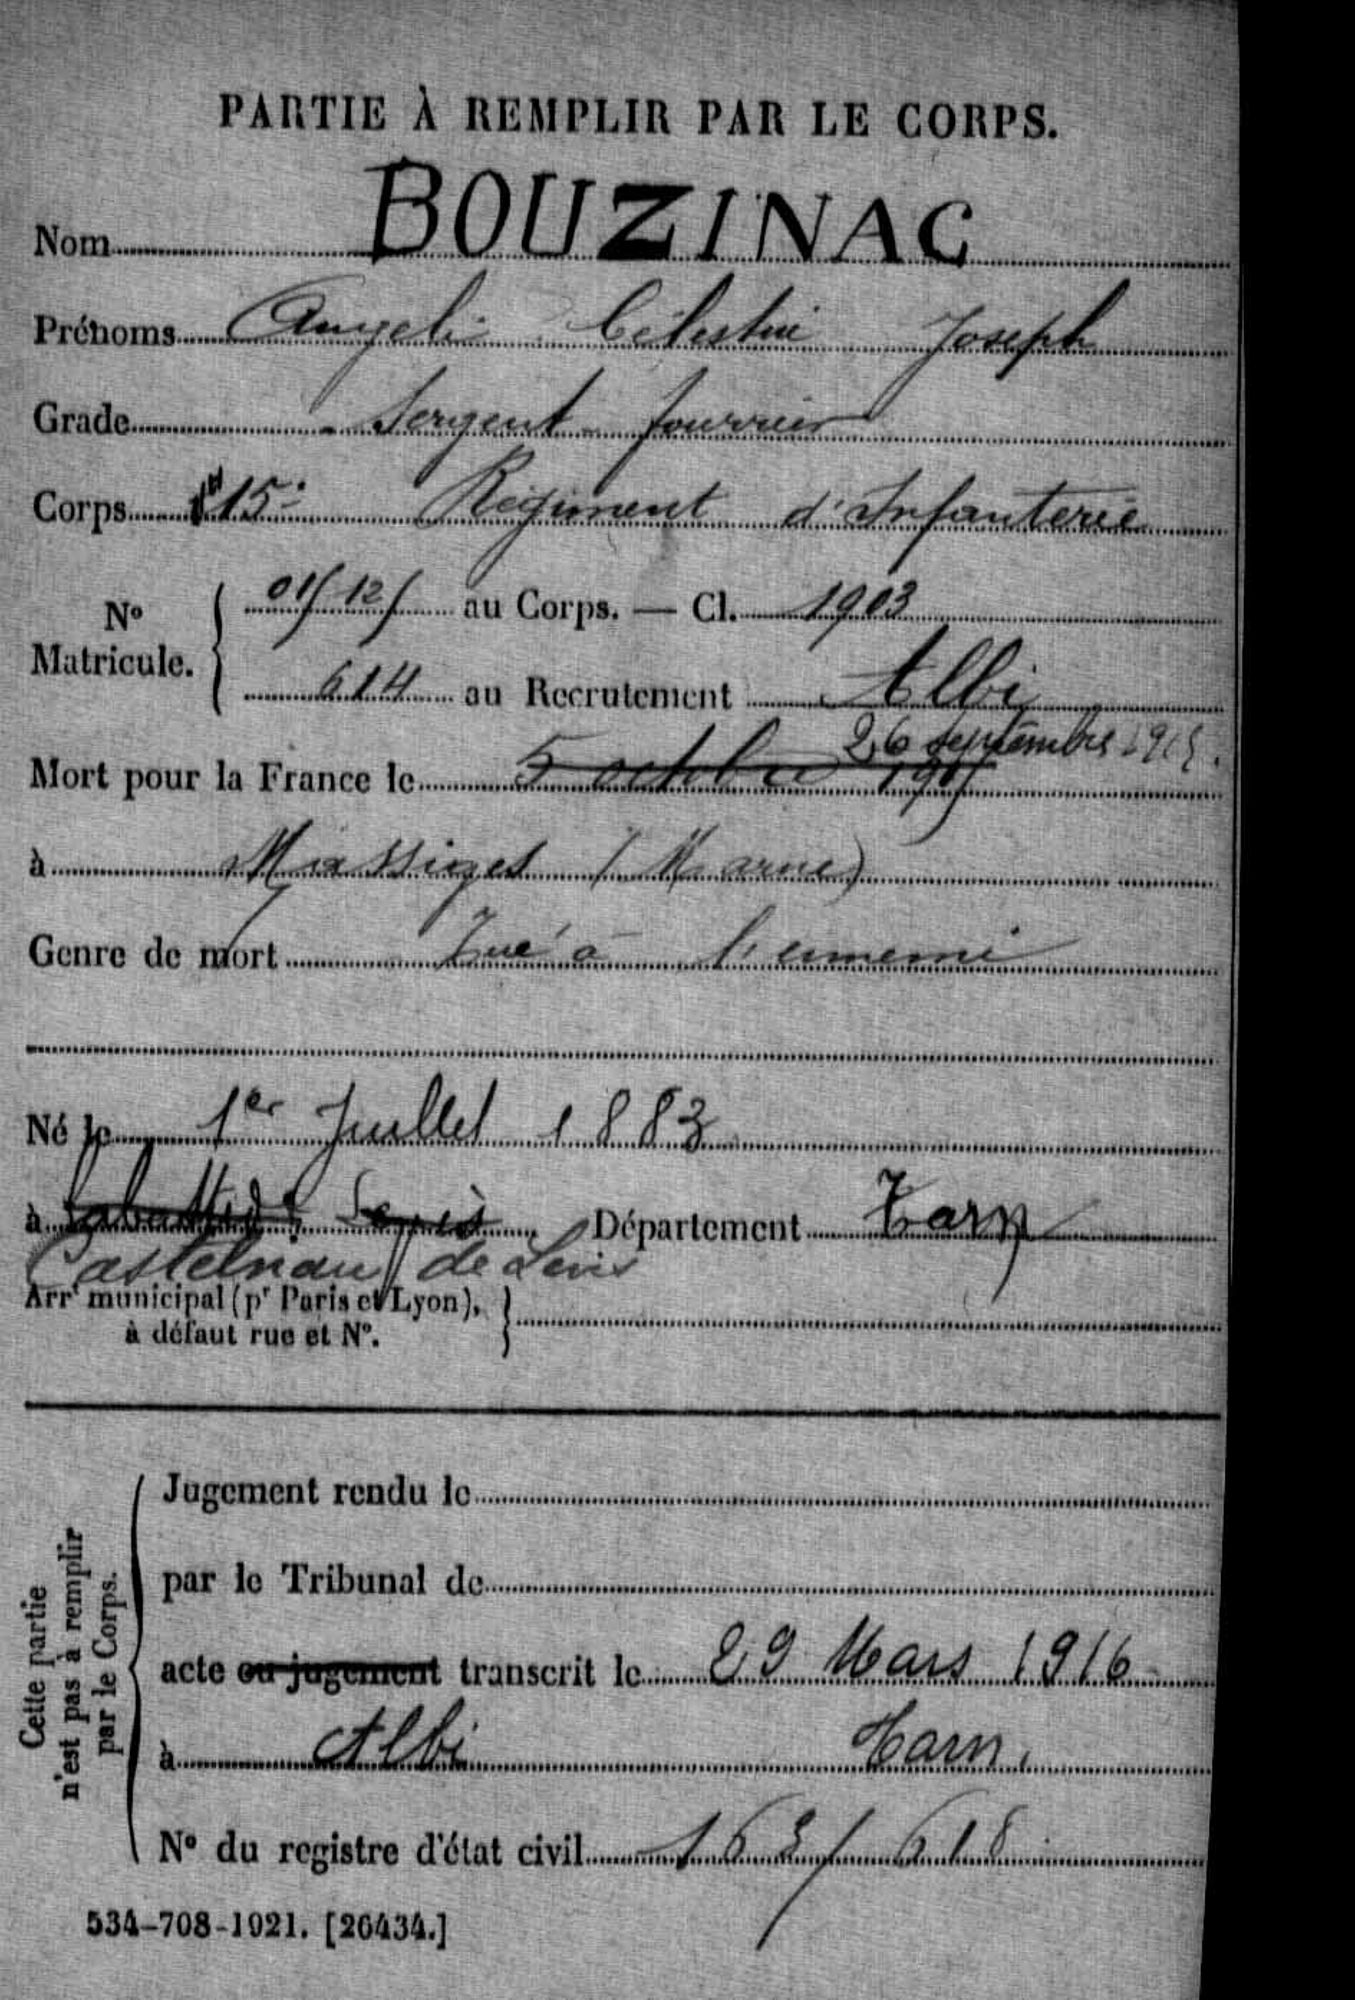 PARTIE À REMPLIR PAR LE CORPS.
Nom BOUZINAC
Prénoms Angeli Célestin Joseph
Grade Sergent fourrier
Corps 15e Régiment d'Infanterie
No Matricule. 01/12/ au Corps. — Cl. 1903
614 au Recrutement Albi
26 septembre 1915.
Mort pour la France le 5 octobre 1915
à Massiges (Marne)
Genre de mort Tué à l'ennemi
Né le 1er Juillet 1883
à Département Tarn
Castelnau de Levis
Arrt municipal (pr Paris et Lyon), à défaut rue et No.
Cette partie n'est pas à remplir par le Corps.
Jugement rendu le
par le Tribunal de
acte ou jugement transcrit le 29 Mars 1916
à Albi Tarn.
No du registre d'état civil 163/618
534-708-1921. [26434.]